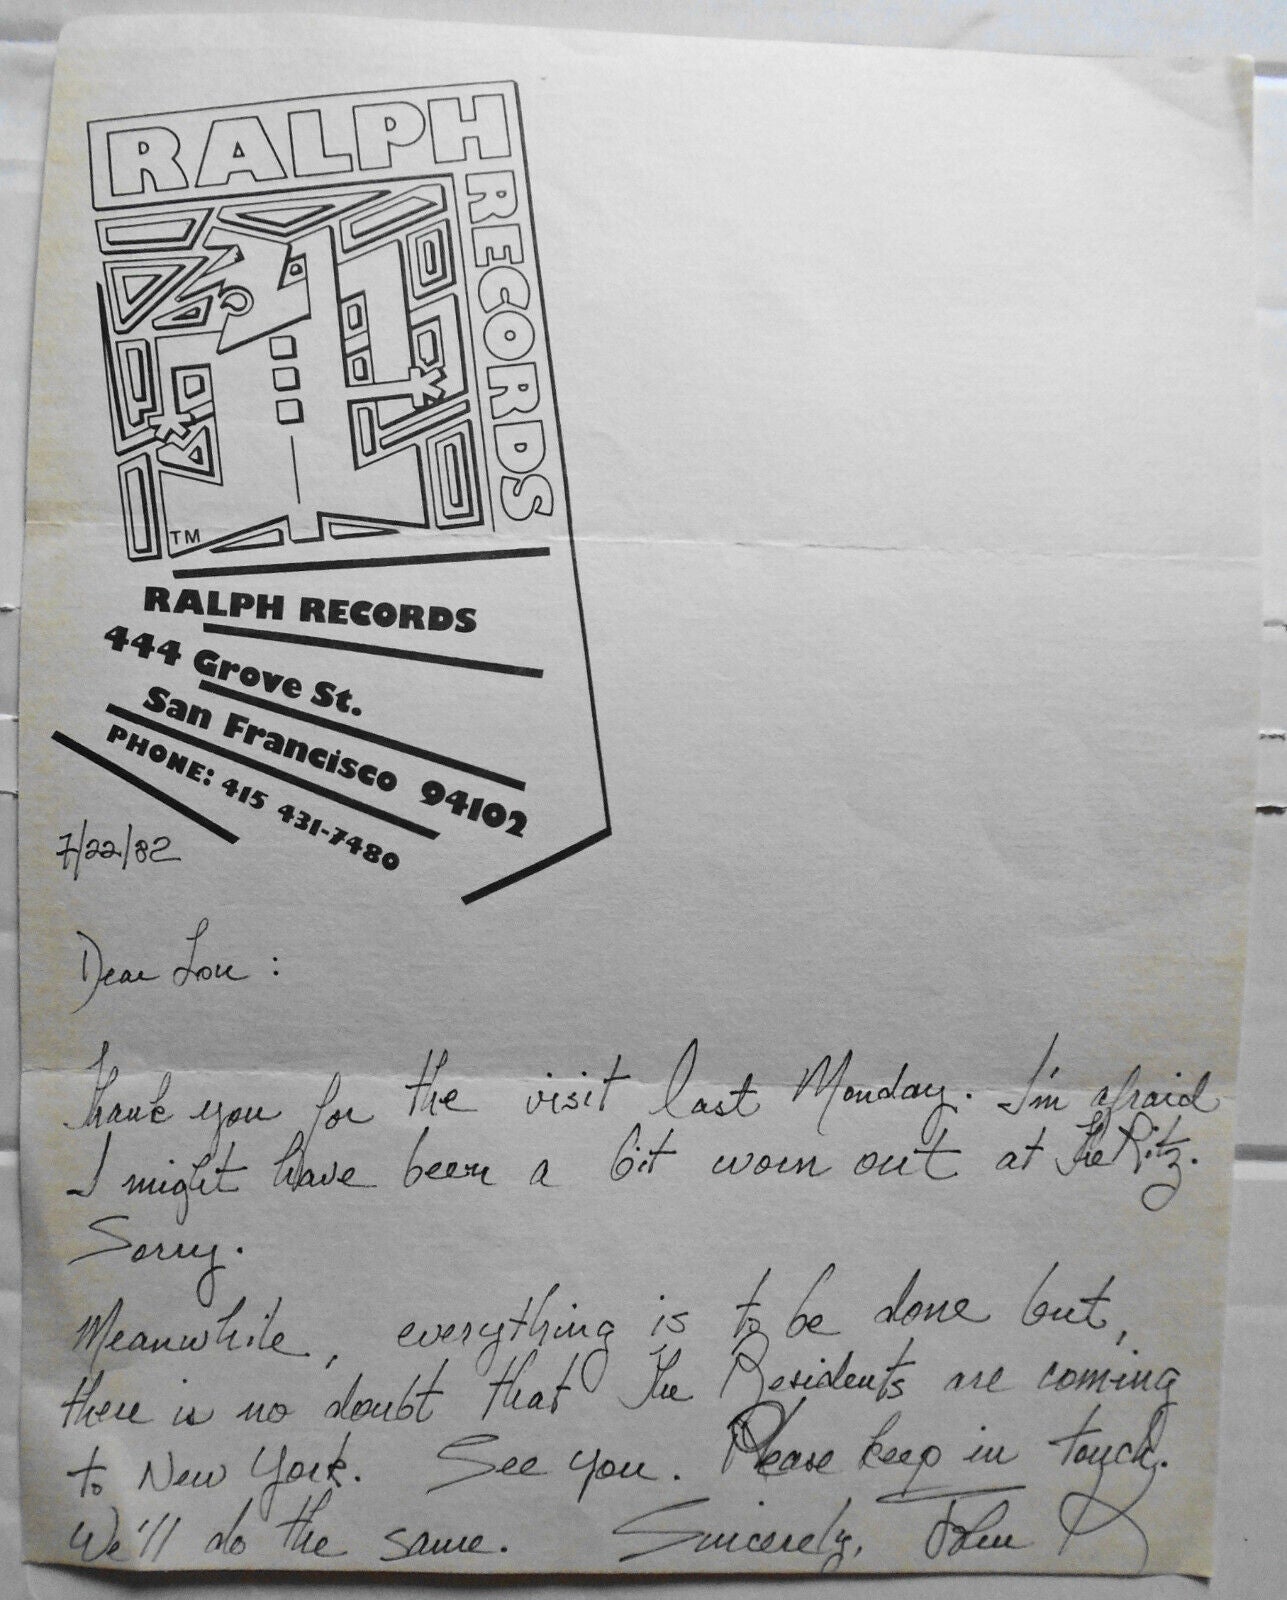 RALPH
RECORDS
TM
RALPH RECORDS
444 Grove St.
San Francisco 94102
PHONE: 415 431-7480
7/22/82
Dear Lou :
Thank you for the visit last Monday. I'm afraid
I might have been a bit worn out at The Ritz.
Sorry.
Meanwhile, everything is to be done but,
there is no doubt that The Residents are coming
to New York. See you. Please keep in touch.
We'll do the same. Sincerely, John